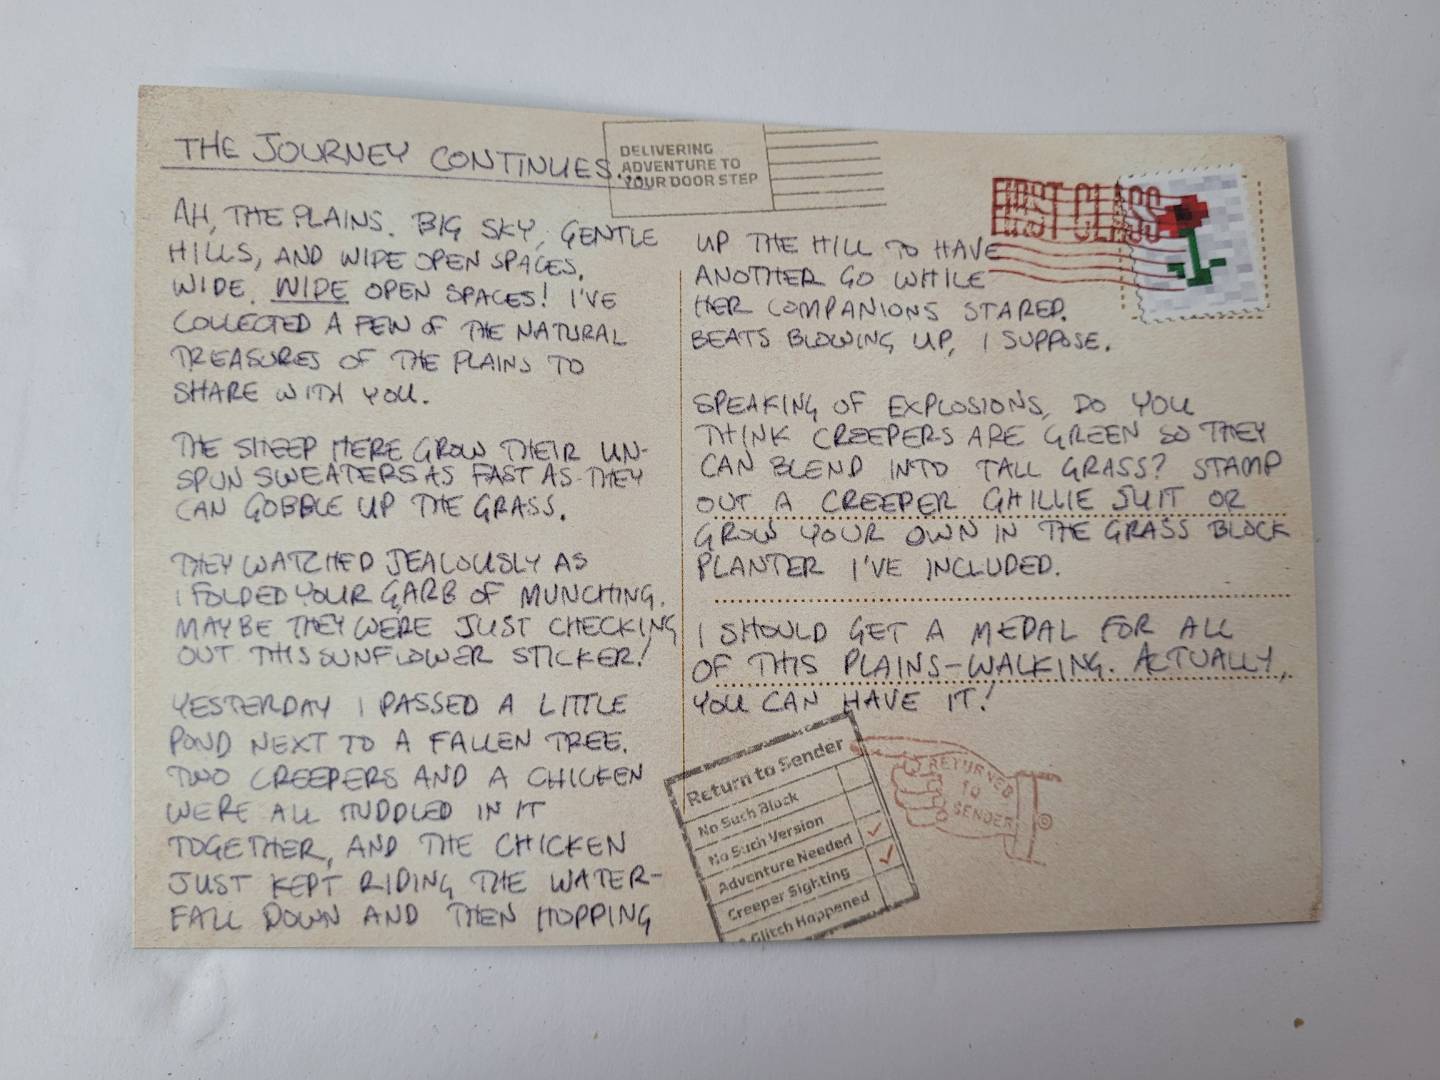 THE JOURNEY CONTINUES...
DELIVERING
ADVENTURE TO
YOUR DOOR STEP
AH, THE PLAINS. BIG SKY, GENTLE
HILLS, AND WIDE OPEN SPACES.
WIDE. WIDE OPEN SPACES! I'VE
COLLECTED A FEW OF THE NATURAL
TREASURES OF THE PLAINS TO
SHARE WITH YOU.
THE SHEEP HERE GROW THEIR UN-
SPUN SWEATERS AS FAST AS THEY
CAN GOBBLE UP THE GRASS.
THEY WATCHED JEALOUSLY AS
I FOLDED YOUR GARB OF MUNCHING.
MAYBE THEY WERE JUST CHECKING
OUT THIS SUNFLOWER STICKER!
YESTERDAY I PASSED A LITTLE
POND NEXT TO A FALLEN TREE.
TWO CREEPERS AND A CHICKEN
WERE ALL HUDDLED IN IT
TOGETHER, AND THE CHICKEN
JUST KEPT RIDING THE WATER-
FALL DOWN AND THEN HOPPING
FIRST CLASS
UP THE HILL TO HAVE
ANOTHER GO WHILE
HER COMPANIONS STARED.
BEATS BLOWING UP, I SUPPOSE.
SPEAKING OF EXPLOSIONS, DO YOU
THINK CREEPERS ARE GREEN SO THEY
CAN BLEND INTO TALL GRASS? STAMP
OUT A CREEPER GHILLIE SUIT OR
GROW YOUR OWN IN THE GRASS BLOCK
PLANTER I'VE INCLUDED.
I SHOULD GET A MEDAL FOR ALL
OF THIS PLAINS-WALKING. ACTUALLY,
YOU CAN HAVE IT!
Return to Sender
No Such Block
No Such Version
Adventure Needed
Creeper Sighting
Glitch Happened
RETURNED
TO
SENDER
©